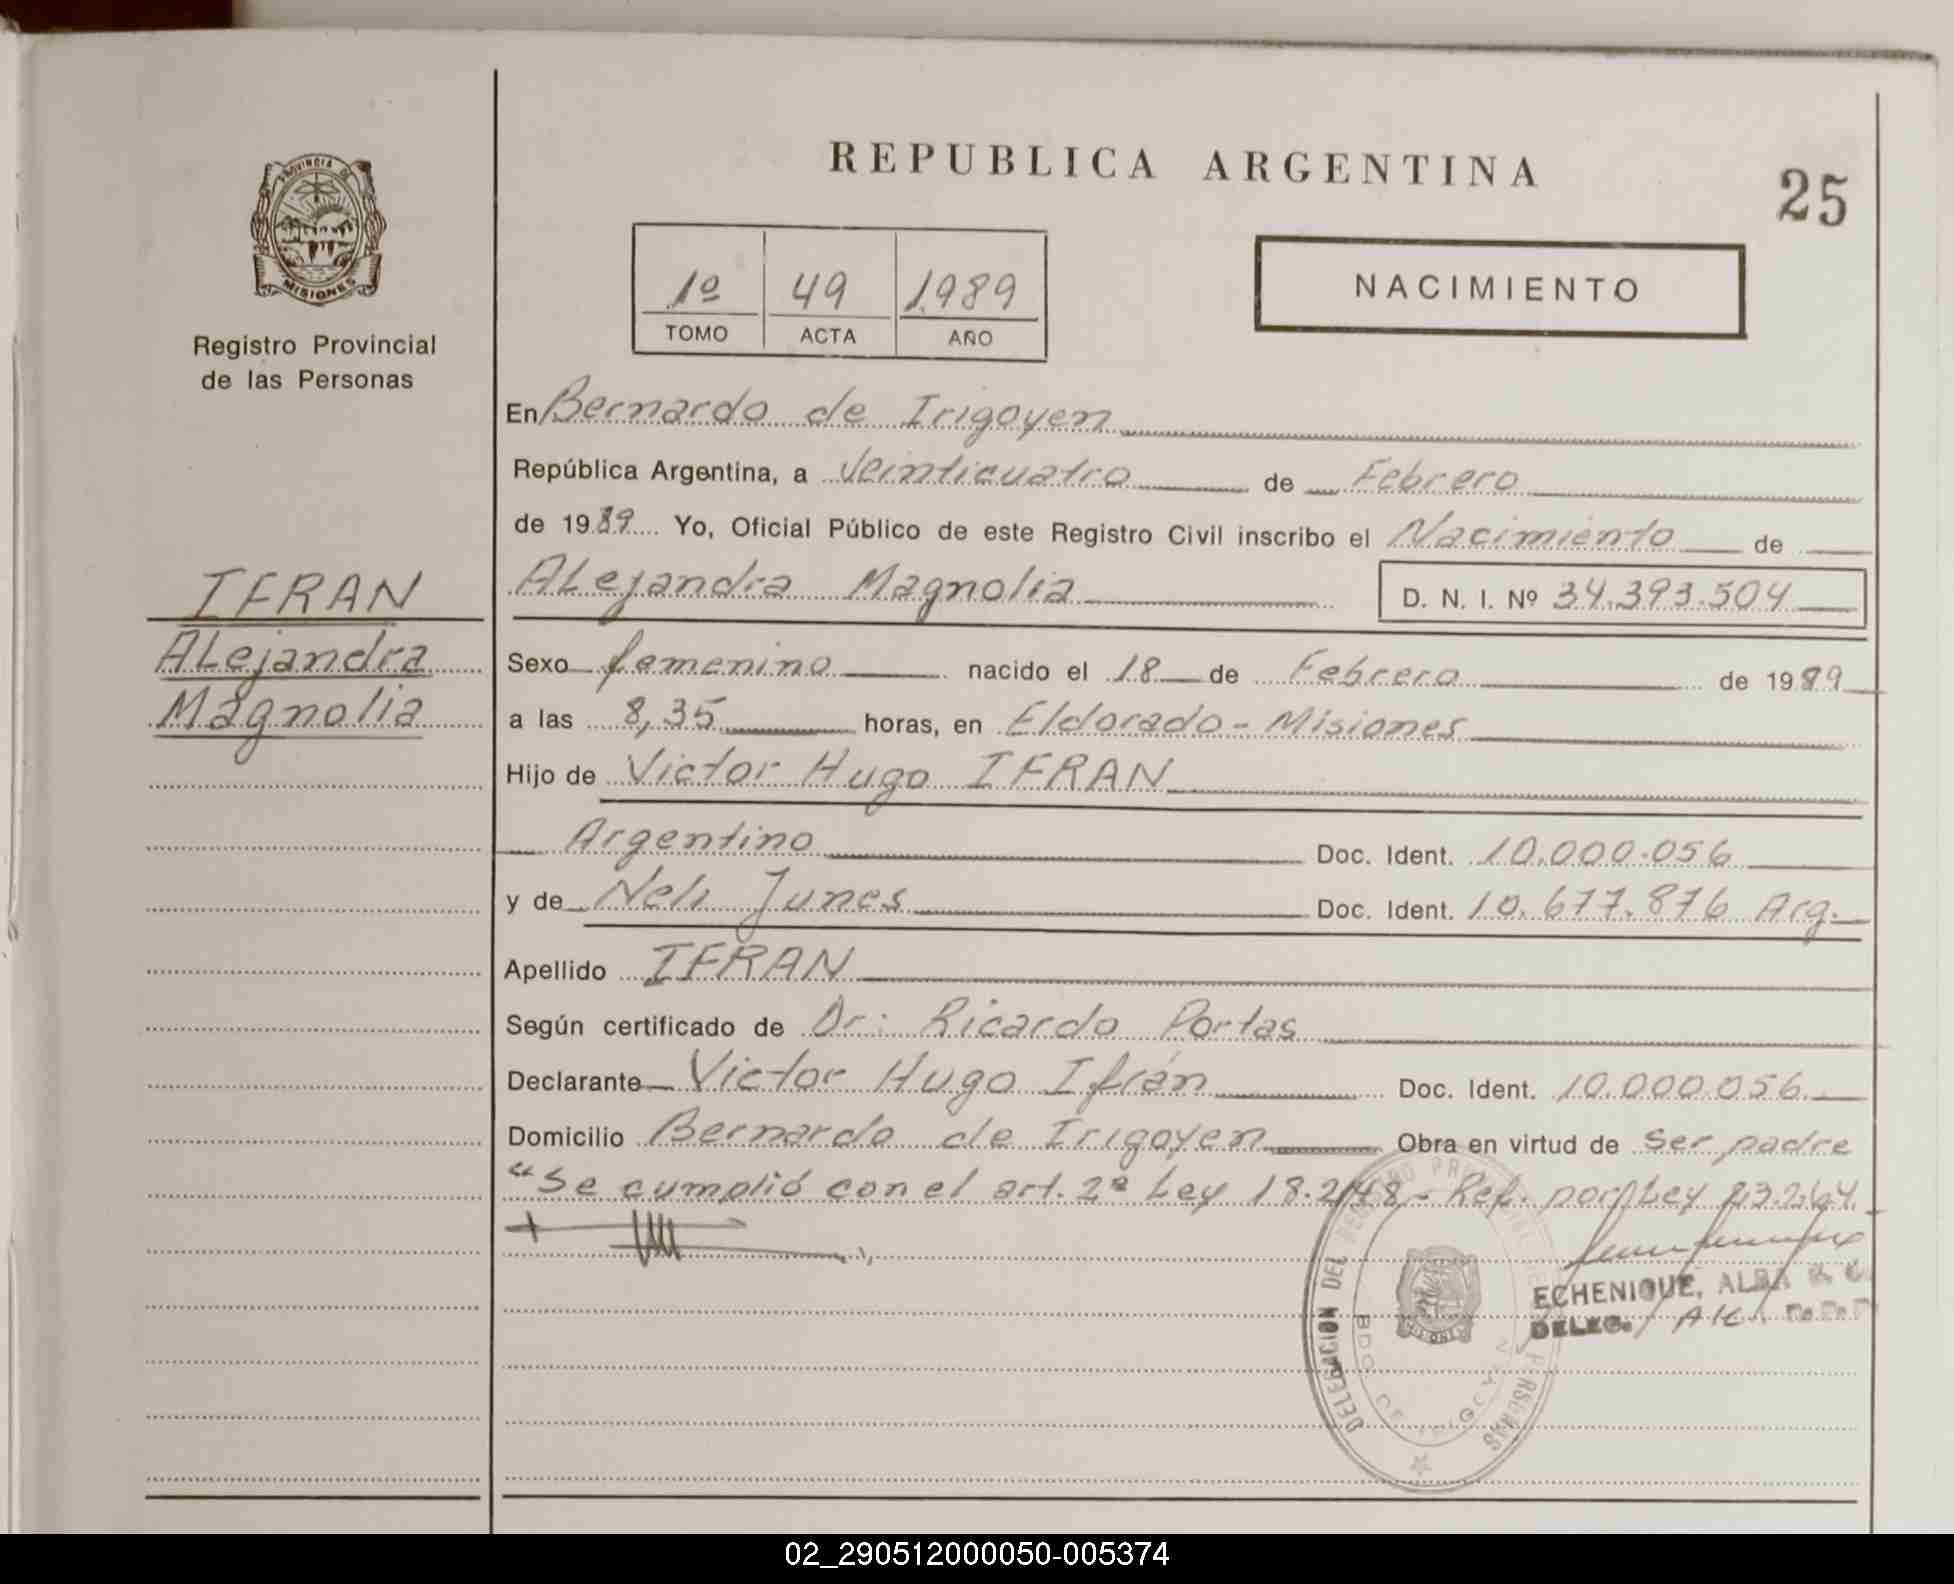 REPUBLICA ARGENTINA
25
PROVINCIA DE
MISIONES
Registro Provincial
de las Personas
1º 49 1.989
TOMO ACTA AÑO
NACIMIENTO
En Bernardo de Irigoyen
República Argentina, a Veinticuatro de Febrero
de 1989 Yo, Oficial Público de este Registro Civil inscribo el Nacimiento de
IFRAN
Alejandra
Magnolia
Alejandra Magnolia D. N. I. Nº 34.393.504
Sexo femenino nacido el 18 de Febrero de 1989
a las 8,35 horas, en Eldorado - Misiones
Hijo de Victor Hugo IFRAN
Argentino Doc. Ident. 10.000.056
y de Neli Junes Doc. Ident. 10.677.876 Arg.
Apellido IFRAN
Según certificado de Dr: Ricardo Portas
Declarante Victor Hugo Ifrán Doc. Ident. 10.000.056
Domicilio Bernardo de Irigoyen Obra en virtud de ser padre
"Se cumplió con el art. 2º Ley 18.248 - Ref. por Ley 23.264.
ECHENIQUE, ALBA
DELEG.
DELEGACION DEL REGISTRO PROVINCIAL DE PERSONAS
BDO. DE IRIGOYEN
02_290512000050-005374